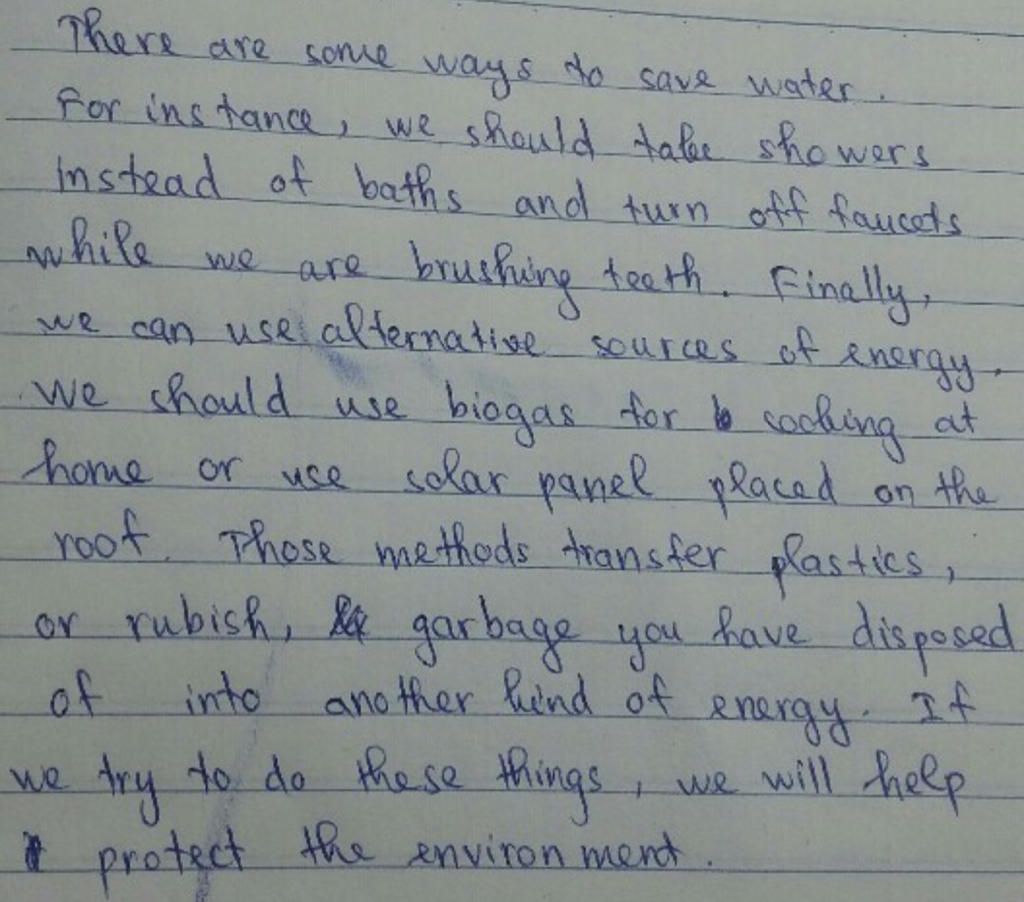 There are some ways to save water.
For instance, we should take showers
instead of baths and turn off faucets
while we are brushing teeth. Finally,
we can use alternative sources of energy.
We should use biogas for cooking at
home or use solar panel placed on the
roof. Those methods transfer plastics,
or rubish, garbage you have disposed
of into another kind of energy. If
we try to do these things, we will help
protect the environment.